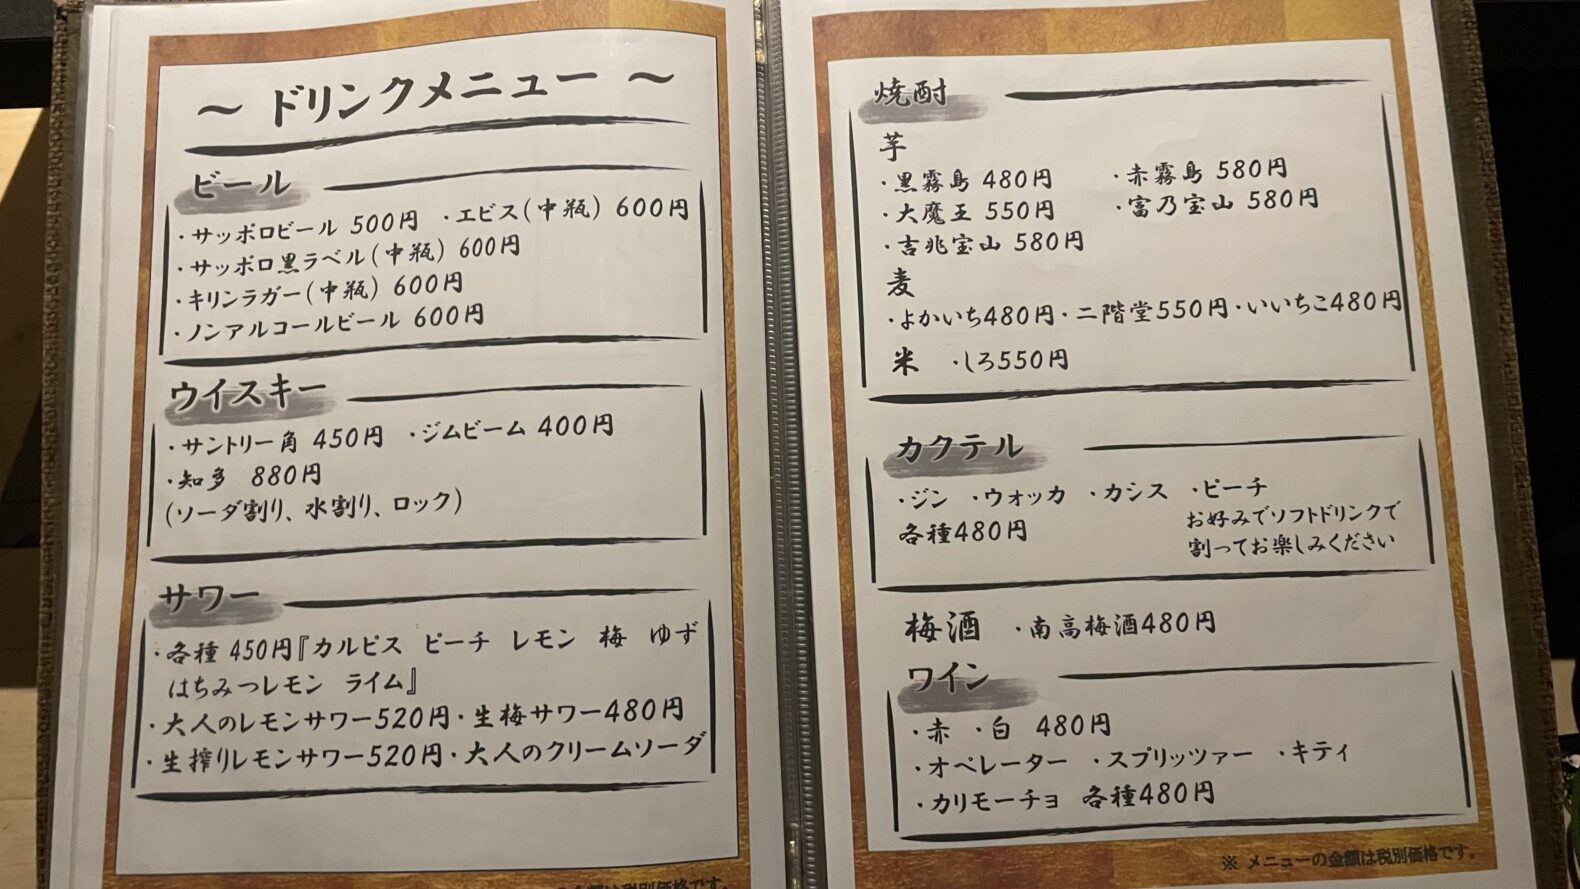 ～ ドリンクメニュー ～
ビール
・サッポロビール 500円 ・エビス(中瓶) 600円
・サッポロ黒ラベル(中瓶) 600円
・キリンラガー(中瓶) 600円
・ノンアルコールビール 600円
ウイスキー
・サントリー角 450円 ・ジムビーム 400円
・知多 880円
(ソーダ割り、水割り、ロック)
サワー
・各種 450円『カルピス ピーチ レモン 梅 ゆず
はちみつレモン ライム』
・大人のレモンサワー520円・生梅サワー480円
・生搾りレモンサワー520円・大人のクリームソーダ
の金額は税別価格です。
焼酎
芋
・黒霧島 480円 ・赤霧島 580円
・大魔王 550円 ・富乃宝山 580円
・吉兆宝山 580円
麦
・よかいち480円・二階堂550円・いいちこ480円
米 ・しろ550円
カクテル
・ジン ・ウォッカ ・カシス ・ピーチ
各種480円
お好みでソフトドリンクで
割ってお楽しみください
梅酒 ・南高梅酒480円
ワイン
・赤 ・白 480円
・オペレーター ・スプリッツァー ・キティ
・カリモーチョ 各種480円
※ メニューの金額は税別価格です。